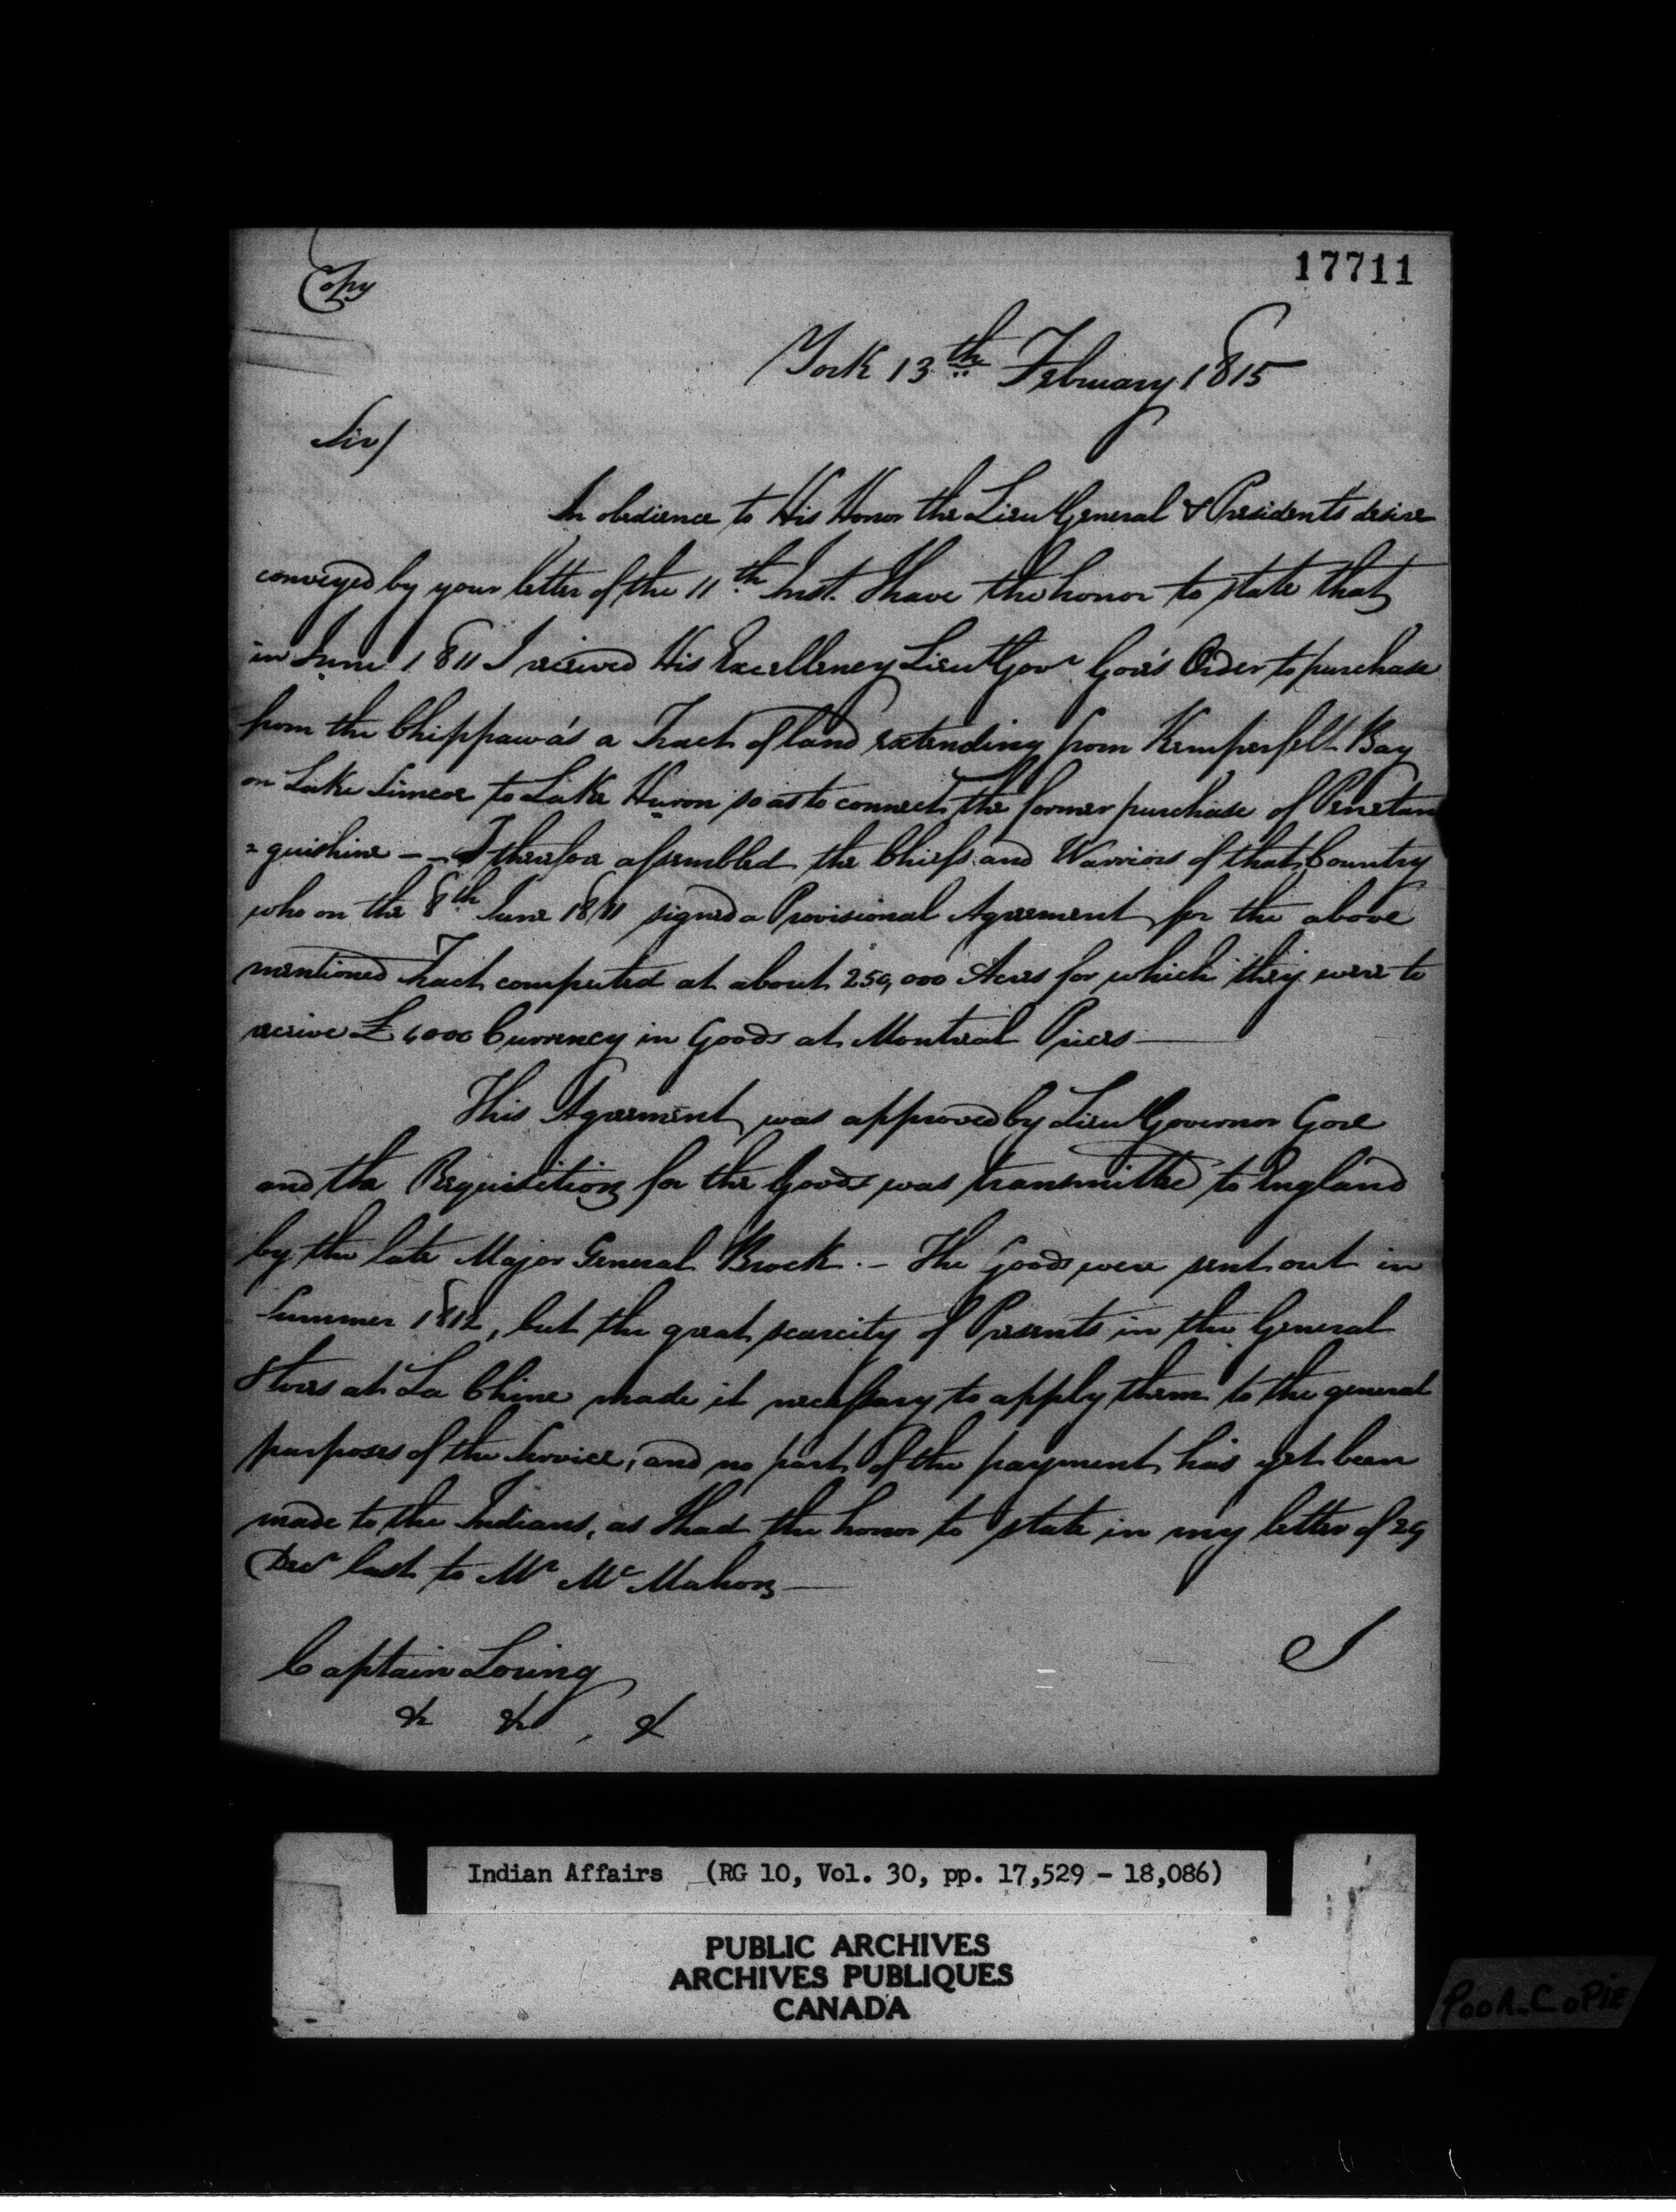 Copy
17711
York 13th February 1815
Sir/
In obedience to His Honor the Lieut General & Presidents desire
conveyed by your letter of the 11th Inst. I have the honor to state that
in June 1811 I received His Excellency Lieut Govr Gore's Order to purchase
from the Chippawa's a Tract of land extending from Kempenfelt Bay
on Lake Simcoe to Lake Huron so as to connect the former purchase of Penetan
=guishine -- I therefore assembled the Chiefs and Warriors of that Country
who on the 8th June 1811 signed a Provisional Agreement for the above
mentioned Tract computed at about 250,000 Acres for which they were to
receive £4000 Currency in Goods at Montreal Prices —
This Agreement was approved by Lieut Governor Gore
and the Requisition for the Goods was transmitted to England
by the late Major General Brock. - The Goods were sent out in
Summer 1812, but the great scarcity of Presents in the General
Stores at La Chine made it necessary to apply them to the general
purposes of the Service, and no part of the payment has yet been
made to the Indians, as I had the honor to state in my letter of 29
Decr last to Mr McMahon —
I
Captain Loring
& & , &
Indian Affairs (RG 10, Vol. 30, pp. 17,529 - 18,086)
PUBLIC ARCHIVES
ARCHIVES PUBLIQUES
CANADA
POOR COPIE